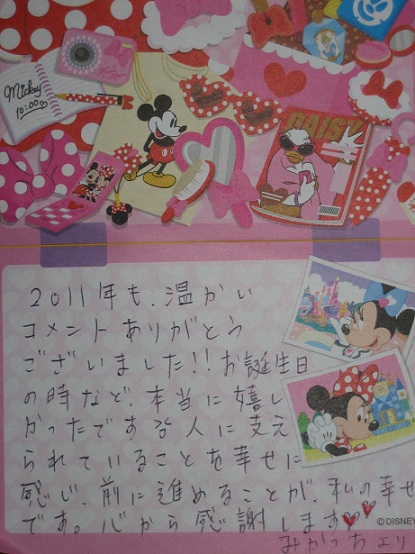 Mickey
10:00♡
DAISY
2011年も、温かい
コメントありがとう
ございました!! お誕生日
の時など、本当に嬉し
かったです 人に支え
られていることを幸せに
感じ、前に進めることが、私の幸せ
です。心から感謝します♥♥
©DISNEY
みかっちより